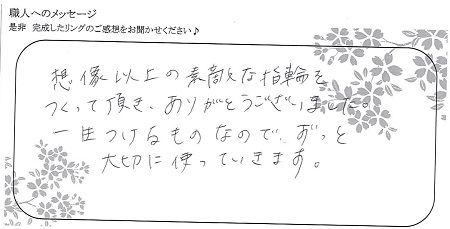 職人へのメッセージ
是非 完成したリングのご感想をお聞かせください♪
想像以上の素敵な指輪を
つくって頂き、ありがとうございました。
一生つけるものなので、ずっと
大切に使っていきます。